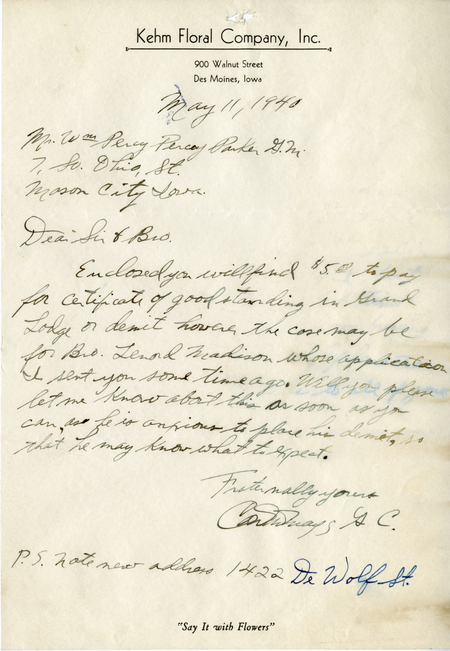 Kehm Floral Company, Inc.
900 Walnut Street
Des Moines, Iowa
May 11, 1940
Mr. Wm Percy Percy Parker G.M.
7, So. Ohio, St.
Mason City Iowa.
Dear Sir & Bro.
Enclosed you will find $5.00 to pay
for certificate of good standing in Grand
Lodge or demit however the case may be
for Bro. Lenord Madison whose application
I sent you some time ago. Will you please
let me know about this as soon as you
can, as he is anxious to place his demit, so
that he may know what to expect.
Fraternally yours
G. C.
P.S. Note new address 1422 De Wolf St.
"Say It with Flowers"